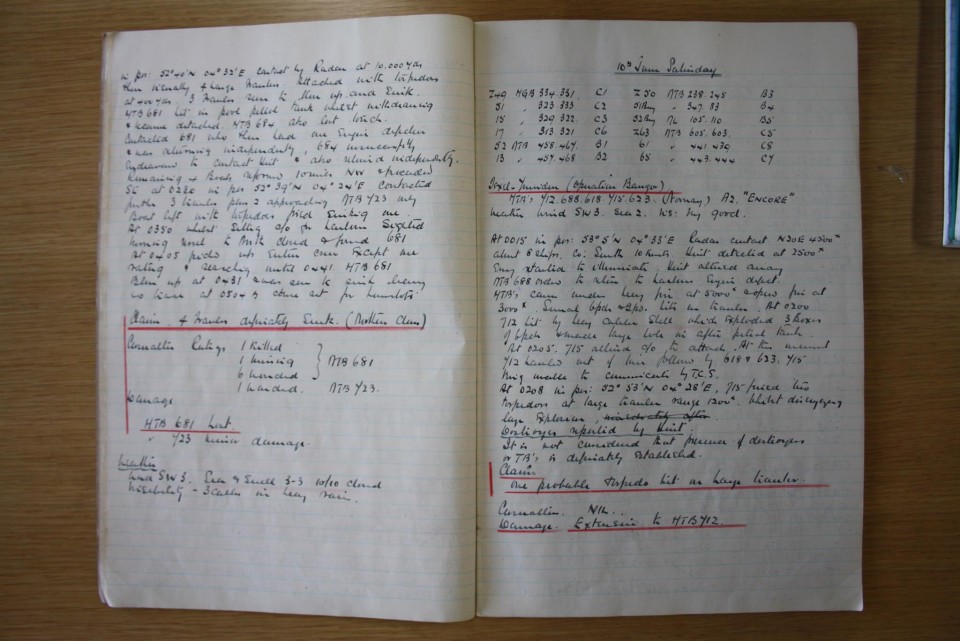 in pos: 52°40'N 04°32'E contact by Radar at 10.000 yds
then visually 4 large trawlers attacked with torpedoes
at 400 yds. 3 trawlers seen to blow up and sink.
MTB 681 hit in petrol tank whilst withdrawing
& became detached. MTB 684 also lost touch.
Contacted 681 who then had one Engine defective
& was returning independently, 684 unsuccessfully
Endeavour to contact Unit & also returned independently.
Remaining 4 Boats reformed 10 miles NW & proceeded
St at 0220 in pos 52°39'N 04°24'E contacted
further 3 trawlers plus 2 approaching MTB 723 only
Boat left with torpedoes fired sinking one.
At 0350 whilst setting c/o for Harbour sighted
burning vessel to North closed & found 681
At 0405 picked up entire crew Except one
rating & searching until 0441. MTB 681
Blew up at 0431 & was seen to sink
no trace at 0504 & course set for
Claim 4 Trawlers definitely Sunk. (Mothers Class)
Casualties Ratings 1 Killed
1 missing MTB 681
6 wounded
1 wounded. MTB 723.
Damage
MTB 681 Lost
" 723 minor damage.
Weather
Wind SW 3. Sea & Swell 3-3 10/10 cloud
Visibility - 3 cables in heavy rain.
10th June Saturday
Z49 MGB 334.331. C1 Z50 MTB 238.245 B3
51 " 323.333 C2 51 " 347.83 B4
15 " 329.322. C3 52 " 74 105.110 B5
17 " 313.321 C6 Z63 MTB 605.603. C5
52 MTB 458.467. B1 61 " 441.430 C8
13 " 457.468 B2 65 " 443.444 C7
Texel-Ijmuiden (Operation Bangor)
MTB's 712.688.618.715.623. (Norway) A2. "ENCORE"
Weather wind SW 3. Sea 2. Vis: Very good.
At 0015 in pos: 53°5'N 04°33'E Radar contact N20E 4500x
about 8 ships. Co: South 10 knots Unit detected at 2500x
Enemy started to illuminate, Unit altered away
MTB 688 orders to return to harbour Engine defect.
MTB's came under heavy fire at 5000x & open fire at
3000x. Several 6pdr & 2pdr. hits on trawlers. At 0200
712 hit by heavy calibre shell which exploded 3 boxes
of 6pdrs & made large hole in after petrol tank.
At 0205. 715 altered c/o to attack. At this moment
712 hauled out of line followed by 618 & 623. 715
being unable to communicate by T.C.S.
At 0208 in pos: 52° 53'N 04° 28'E, 715 fired two
torpedoes at large trawler range 1200x. Whilst disengaging
large Explosion, immediately after
Destroyers reported by Unit.
It is not considered that presence of destroyers
or TB's is definitely established.
Claim
One probable Torpedo hit on Large trawler.
Casualties. NIL..
Damage. Extensive to MTB 712.